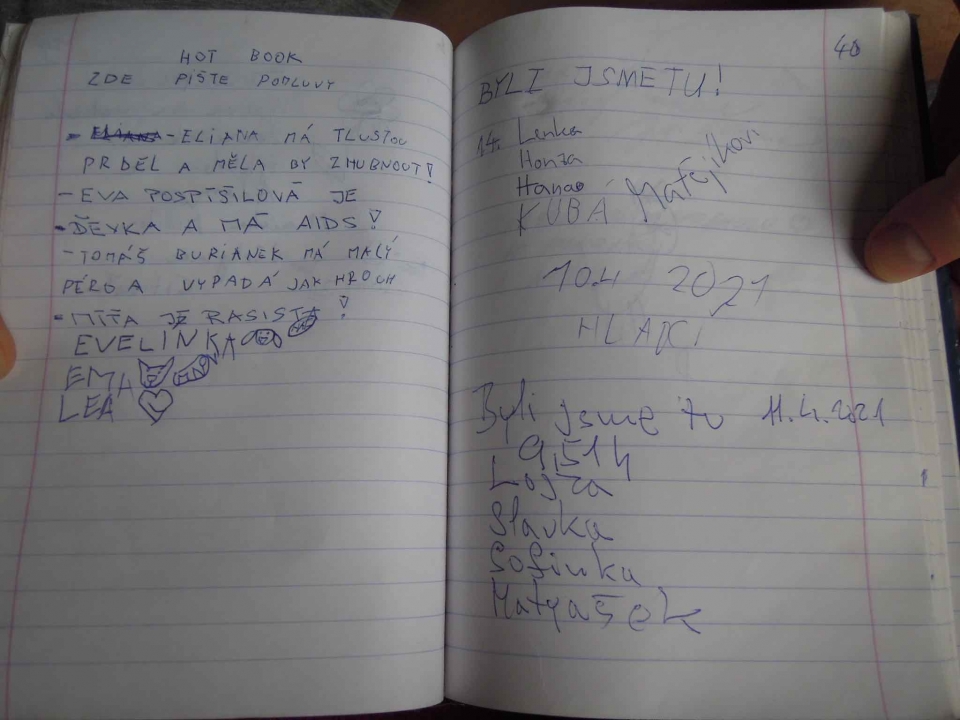 HOT BOOK
ZDE PIŠTE POMLUVY
- ELIANA - ELIANA MÁ TLUSTOU
PRDEL A MĚLA BY ZHUBNOUT!
- EVA POSPÍŠILOVÁ JE
- DĚVKA A MÁ AIDS!
- TOMÁŠ BURIANEK MÁ MALÝ
PÉRO A VYPADÁ JAK HROCH
- MÍŠA JE RASISTA!
EVELÍNKA
EMA
LEA
40
BYLI JSME TU!
14. Lenka
Honza
Hanna
KUBA Matějkovi
10.4 2021
Byli jsme tu 11.4.2021
9,51 h
Lojza
Slávka
Sofinka
Matyášek